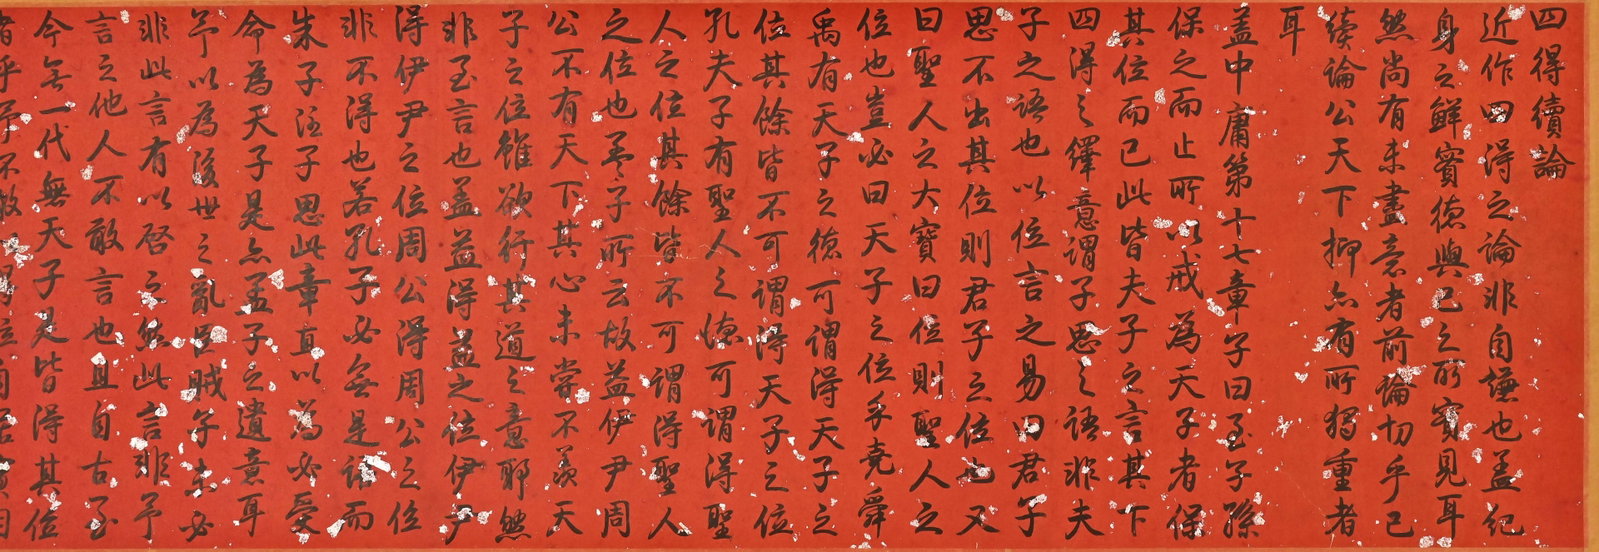 四得續論
近作四得之論非自謙也盖紀
身之鮮實德與己之所實見耳
然尚有未盡意者前論切乎己
續論公天下抑亦有所獨重者
耳
盖中庸第十七章子曰至子孫
保之而止所以戒為天子者保
其位而已此皆夫子之言其下
四得之繹意謂子思之語非夫
子之語也以位言之易曰君子
思不出其位則君子之位也又
曰聖人之大寶曰位則聖人之
位也豈必曰天子之位乎堯舜
禹有天子之德可謂得天子之
位其餘皆不可謂得天子之位
孔夫子有聖人之德可謂得聖
人之位其餘皆不可謂得聖人
之位也孟子所云故益伊尹周
公不有天下其心未嘗不羨天
子之位雖欲行其道之意耶然
非至言也盖益得益之位伊尹
得伊尹之位周公得周公之位
非不得也若孔子必無是語而
朱子注子思此章直以為必受
命為天子是亦孟子之遺意耳
予以為後世之亂臣賊子未必
非此言有以啓之然此言非予
言之他人不敢言也且自古至
今無一代無天子是皆得其位
者乎予不敢